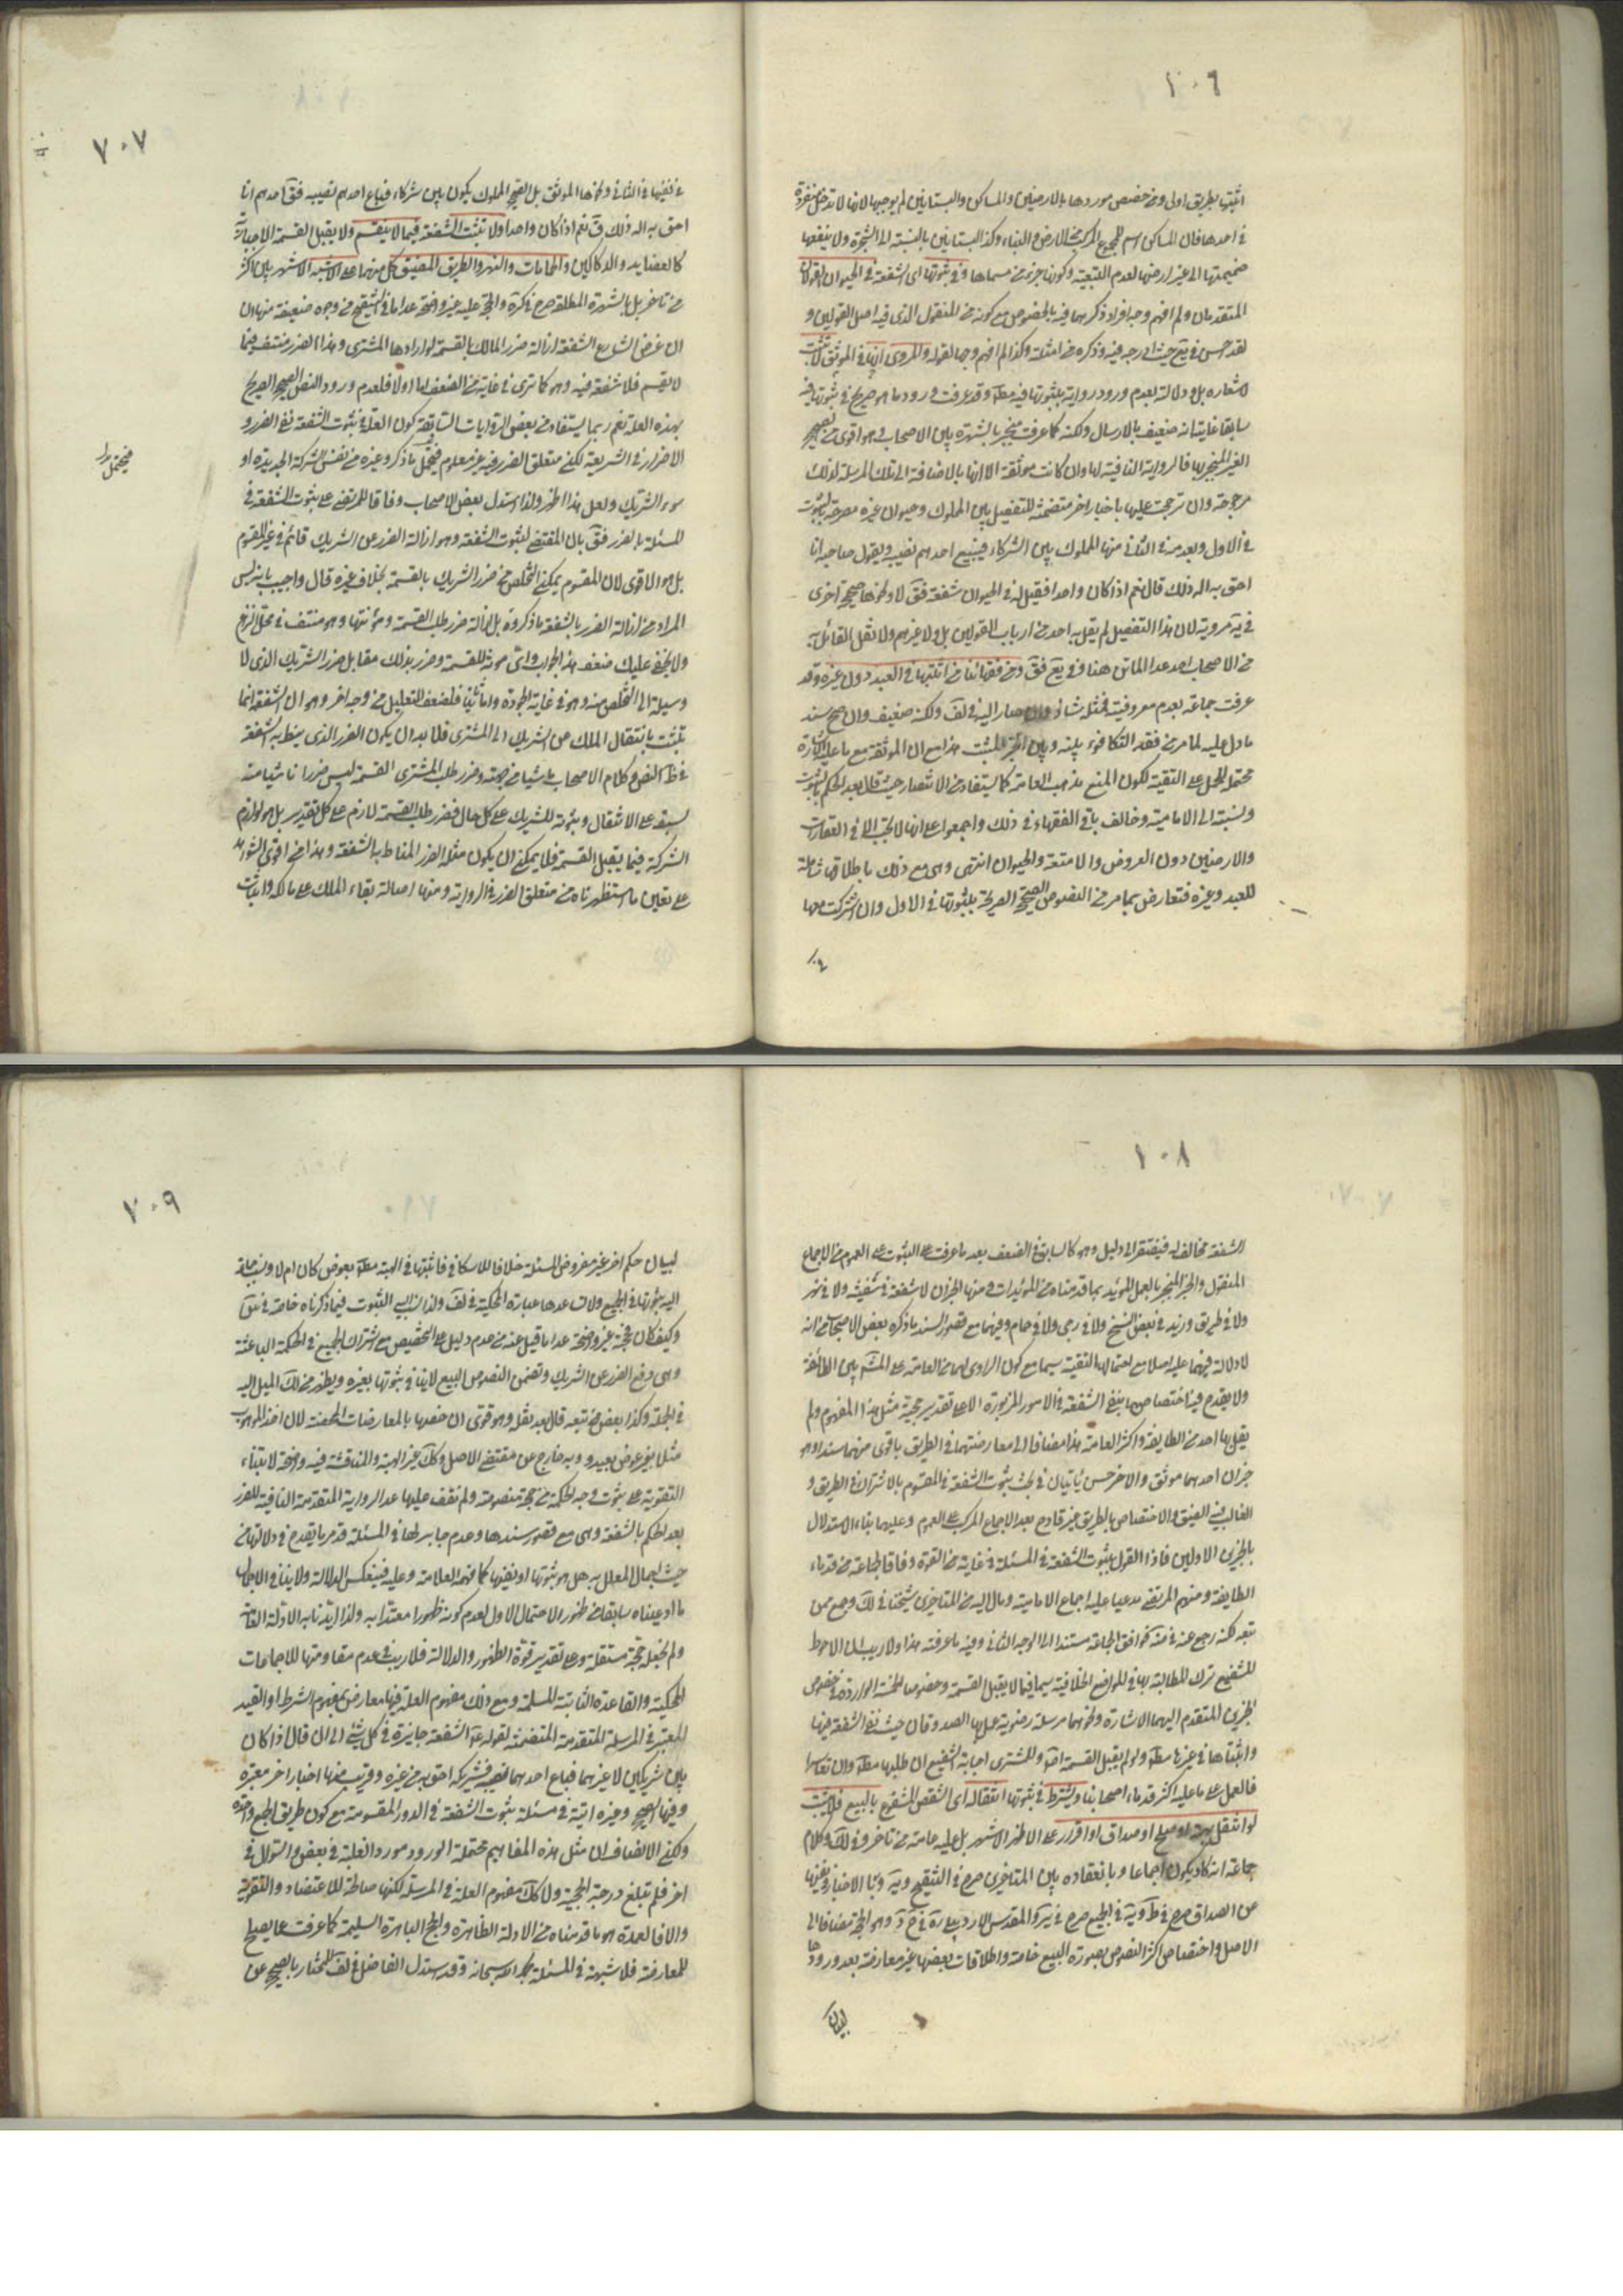 ١٠٦
اثبتها بطريق اولى ومن خصص موردها بالارضين والمساكن والبساتين لم يوجبها لانها لا تدخل منفردة
في احدها فان المساكن اسم للمجموع المركب من الارض والبناء وكذا البساتين بالنسبة الى الشجرة ولا ينفعها
ضميمتها الى غير ارضها لعدم التبعية وكونها جزء من مسماها وفي ثبوتها اى الشفعة في الحيوان القولان
المتقدمان ولم افهم وجه افراد ذكرهما فيه بالخصوص مع كونه من المنقول الذى فيه اصل القولين و
لقد احسن في يع حيث ادرجه فيه وذكره من امثلته وكذا لم افهم وجها لقوله والمروى انها في الموثق لا تثبت
لاشعاره بل ودلالته بعدم ورود رواية بثبوتها فيه مطلقا وقد عرفت ورود ما هو صريح في ثبوتها فيه
سابقا غايته انه ضعيف بالارسال ولكنه كما عرفت منجبر بالشهرة بين الاصحاب فهو اقوى من الصحيح
الغير المنجبر بها فالرواية النافية لها وان كانت موثقة الا انها بالاضافة الى تلك المرسلة لذلك
مرجوحة وان ترجحت عليها باخبار اخر متضمنة للتفصيل بين المملوك وحيوان غيره مصرحة بالثبوت
في الاول وبعدمه في الثاني منها المملوك بين الشركاء فيبيع احدهم نصيبه ويقول صاحبه انا
احق به اله ذلك قال نعم اذا كان واحدا فقيل له في الحيوان شفعة فق لا ونحوها صحيح اخرى
في يه مروية لان هذا التفصيل لم يقل به احد من ارباب القولين بل ولا غيرهم ولا نقل القائل به
من الاصحاب احد عدا الماتن هنا وفي يع فق ومن فقهائنا من اثبتها في العبد دون غيره وقد
عرفت جماعة بعدم معروفيته فمثله شاذ وان صار اليه في لف ولكنه ضعيف وان صح سند
ما دل عليه لما مر من فقد التكافوء بينه وبين الخبر المثبت هذا مع ان الموثقة مع ما عليه الاشارة
محتمل للحمل على التقية لكون المنع مذهب العامة كما يستفاد من الانتصار حيث قال بعد الحكم بالثبوت
ونسبته الى الامامية وخالف باقي الفقهاء في ذلك واجمعوا على انها لا تجب الا في العقارات
والارضين دون العروض والامتعة والحيوان انتهى وهى مع ذلك باطلاقها شاملة
للعبد وغيره فتعارض بما مر من النصوص الصحيح الصريحة بثبوتها في الاول وان اشتركت معها
٧٠٧
في نفيها في الثاني ونحوها الموثق بل الصحيح المملوك يكون بين شركاء فباع احدهم نصيبه فق احدهم انا
احق به اله ذلك ق نعم اذا كان واحدا ولا تثبت الشفعة فيما لا ينقسم ولا يقبل القسمة الاجبارية
كالعضايد والدكاكين والحمامات والنهر والطريق الضيق كل منهما على الاشبه الاشهر بين اكثر
من تاخر بل بالشهرة المطلقة صرح في كره والحجة عليه غير واضحة عدا ما في التنقيح من وجوه ضعيفة منها ان
ان غرض الشارع بالشفعة ازالة ضرر المالك بالقسمة لو ارادها المشترى وهذا الضرر منتف فيما
لا يقسم فلا شفعة فيه وهو كما ترى في غاية من الضعف اما اولا فلعدم ورود النص الصحيح الصريح
بهذه العلة نعم ربما يستفاد من بعض الروايات السابقة كون العلة في ثبوت الشفعة نفى الضرر و
الاضرار في الشريعة لكن متعلق الضرر فيه غير معلوم فيحتمل ما ذكر وغيره من نفس الشركة الجديدة او
سوء الشريك ولعل هذا اظهر ولذا استدل بعض الاصحاب وفاقا للمرتضى على ثبوت الشفعة في
المسئلة بالضرر فق بان المقتضى لثبوت الشفعة وهو ازالة الضرر عن الشريك قائم في غير المقسوم
بل هو الاقوى لان المقسوم يمكن التخلص من ضرر الشريك بالقسمة بخلاف غيره قال واجيب بانه ليس
المراد من ازالة الضرر بالشفعة ما ذكروه بل ازالة ضرر طلب القسمة ومؤنتها وهو منتف في محل النزاع
ولا يخفى عليك ضعف هذا الجواب واى مؤنة للقسمة وضرر بذلك مقابل ضرر الشريك الذى لا
وسيلة الى التخلص منه وهو في غاية الجودة واما ثانيا فلضعف التعليل من وجه اخر وهو ان الشفعة انما
تثبت بانتقال الملك عن الشريك الى المشترى فلا بد ان يكون الضرر الذى ينط به الشفعة
في ظ النص وكلام الاصحاب ناشيا من جهته وضرر طلب المشترى القسمة ليس ضررا ناشيا منه
لسبقه على الانتقال وثبوته للشريك على كل حال فضرر طلب القسمة لازم على كل تقدير بل هو لوازم
الشركة فيما يقبل القسمة فلا يمكن ان يكون مثله الضرر المناط به الشفعة وهذا من اقوى الشواهد
على تعيين ما استظهرناه من متعلق الضرر في الرواية ومنها اصالة بقاء الملك على مالكه واثبات
١٠٨
الشفعة مخالف له فيفتقر الى دليل وهو كالسابق في الضعف بعد ما عرفت على الثبوت على العموم من الاجماع
المنقول والخبر المنجبر بالعمل المؤيد بما قدمناه من المؤيدات ومنها الخبران لا شفعة في سفينة ولا في نهر
ولا في طريق وزيد في بعض النسخ ولا في رحى ولا في حمام وفيهما مع قصور السند ما ذكره بعض الاصحاب من انه
لا دلالة فيهما عليه اصلا مع احتمالهما التقية سيما مع كون الراوى لهما من العامة على المشهور بين الطائفة
ولا يقدح فيه اختصاصهما بنفى الشفعة في الامور المزبورة الا على تقدير حجية مثل هذا المفهوم ولم
يقل بها احد من الطايفة واكثر العامة هذا مضافا الى معارضتهما في الطريق باقوى منهما سندا وهو
خبران احدهما موثق والاخر حسن ياتيان في بحث ثبوت الشفعة في المقسوم بالاشتراك في الطريق و
الغالب فيه الضيق والاختصاص بالطريق غير قادح بعد الاجماع المركب على العموم وعليهما بناء الاستدلال
بالخبرين الاولين فاذا القول بثبوت الشفعة في المسئلة في غاية من القوة وفاقا لجماعة من قدماء
الطايفة ومنهم المرتضى مدعيا عليه اجماع الامامية ومال اليه من المتاخرين شيخنا في لك وجمع ممن
تبعه لكنه رجع عنه في ضه فوافق الجماعة مستندا الى الوجه الثاني وفيه ما عرفته هذا ولا ريب ان الاحوط
للشفيع ترك المطالبة بها في المواضع الخلافية سيما فيما لا يقبل القسمة وخصوصا الخمسة الواردة في خصوص
الخبرين المتقدم اليهما الاشارة ونحوهما مرسلة رضوية عمل بها الصدوقان حيث نفى الشفعة فيها
واثبتاها في غيرها مطلقا ولو لم يقبل القسمة اصلا وللمشترى اجابة الشفيع ان طلبها مطلقا وان تعاسرا
فالعمل على ما عليه اكثر قدماء اصحابنا ويشترط في ثبوتها انتقاله اى الشقص المشفوع بالبيع فلا تثبت
لو انتقل بهبة او صلح او صداق او اقرار على الاظهر الاشهر بل عليه عامة من تاخر وفي لك وكلام
جماعة انه كاد يكون اجماعا وبانعقاده بين المتاخرين صرح في التنقيح
عن الصداق صرح في ط وية في الجميع صرح في ئر والمقدس الاردبيلى وهو الحجة مضافا الى
الاصل واختصاص اكثر النصوص بصورة البيع خاصة واطلاقات بعضها غير معارضة بعد ورودها
لبيان
٧٠٩
لبيان حكم اخر غير مفروض المسئلة خلافا للاسكافي فاثبتها في الهبة مطلقا بعوض كان ام لا ونسبة
اليه بثبوتها في الجميع ولات عدها عبارته المحكية في لف ولذا نسب اليه الثبوت فيما ذكرناه خاصة في يق
وكيف كان فحجته غير واضحة عدا ما قيل عنه من عدم دليل على التخصيص مع اشتراك الجميع في الحكمة الباعثة
وهى دفع الضرر عن الشريك وتضمن النصوص البيع لا ينافي ثبوتها بغيره ويظهر من لك الميل اليه
في الجملة وكذا بعض من تبعه قال بعد نقله وهو قوى ان خصها بالمعارضات المحضة لان اخذ الموهوب
مثلا بغير عوض بعيد وبه خارج عن مقتضى الاصل وكك غير الهبة والمناقشة فيه واضحة لابتناء
التقوية على ثبوت وجه الحكمة من حجة منصوصة ولم نقف عليها عدا الرواية المتقدمة النافية للضرر
بعد الحكم بالشفعة وهى مع قصور سندها وعدم جابر لها في المسئلة قد مر ما يقدح في دلالتها من
حيث اجمال المعلل به هل هو ثبوتها او نفيها كما فهمه العلامة وعليه فينعكس الدلالة ولا ينافي الاجمال
ما ادعيناه سابقا من ظهور الاحتمال الاول لعدم كونه ظهورا معتدا به ولذا ايدنا به الادلة السابقة
ولم نجعله حجة مستقلة وعلى تقدير قوة الظهور والدلالة فلا ريب في عدم مقاومتها للاجماعات
المحكية والقاعدة الثابتة المسلمة ومع ذلك مفهوم العلة فيها معارض بمفهوم الشرط او القيد
المعتبر في المرسلة المتقدمة المتضمنة لقوله الشفعة جايزة في كل شئ الى ان قال اذا كان
بين شريكين لا غيرهما فباع احدهما نصيبه فشريكه احق به من غيره وقريب منها اخبار اخر معتبرة
وفيها الصحيح وغيره اتية في مسئلة ثبوت الشفعة في الدور المقسومة مع كون طريق الجميع واحدة
ولكن الانصاف ان مثل هذه المفاهيم محتملة الورود مورد الغلبة في بعض والسؤال في
اخر فلم تبلغ درجة الحجية ولا كك مفهوم العلة في المرسلة لكنها صالحة للاعتضاد والتقوية
والا فالعمدة هو ما قدمناه من الادلة الظاهرة والحجج الباهرة السليمة كما عرفت عما يصلح
للمعارضة فلا شبهة في المسئلة بحمد الله سبحانه وقد استدل الفاضل في لف للمختار بالصحيح عن